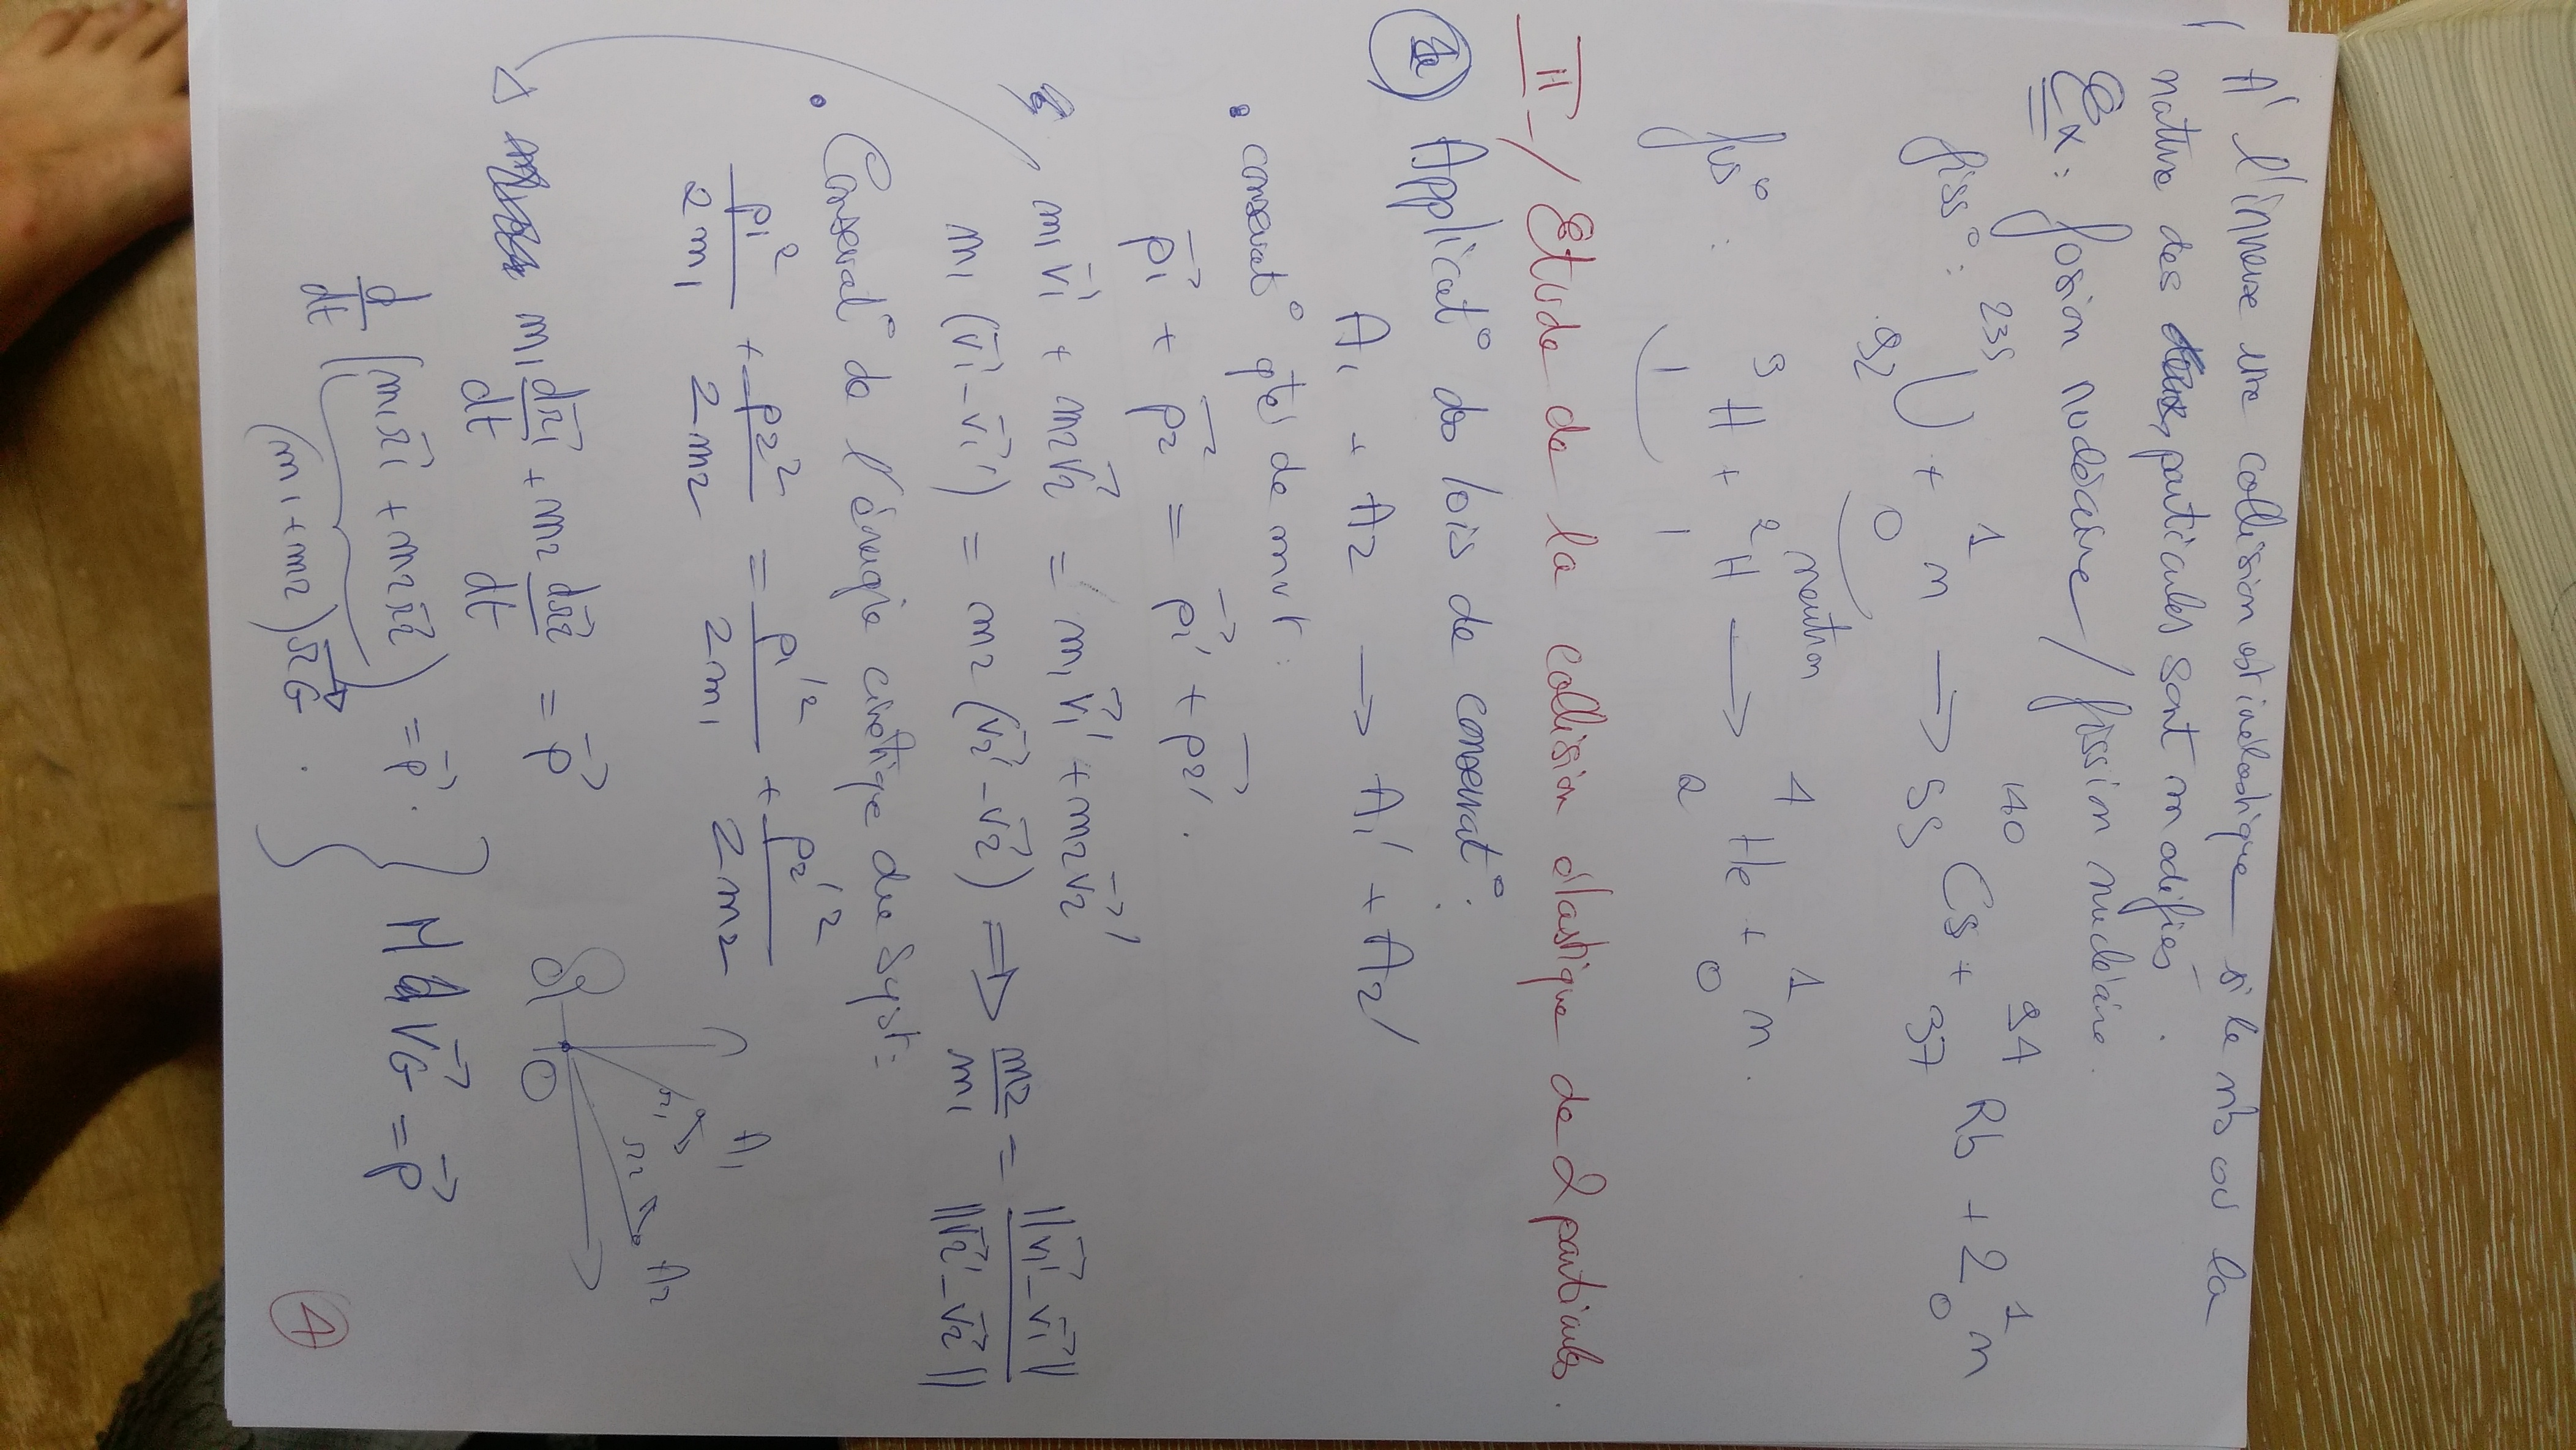 A' l'inverse une collision est inélastique si le nb ou la
nature des particules sont modifiés.
Ex: fusion nucléaire / fission nucléaire.
fiss°: ²³⁵₉₂U + ¹₀n → ¹⁴⁰₅₅Cs + ⁹⁴₃₇Rb + 2 ¹₀n
neutron
fus°: ³₁H + ²₁H → ⁴₂He + ¹₀n.
II-/ Etude de la collision élastique de 2 particules.
Applicat° des lois de conservat°:
A₁ + A₂ → A₁' + A₂'
• conservat° qtés de mvt:
p₁⃗ + p₂⃗ = p₁'⃗ + p₂'⃗.
m₁v₁⃗ + m₂v₂⃗ = m₁v₁'⃗ + m₂v₂'⃗
m₁(v₁⃗ - v₁'⃗) = m₂(v₂'⃗ - v₂⃗) ⇒ m₂/m₁ = ||v₁'⃗ - v₁⃗|| / ||v₂'⃗ - v₂⃗||
• Conservat° de l'énergie cinétique du syst:
p₁²/2m₁ + p₂²/2m₂ = p₁'²/2m₁ + p₂'²/2m₂
m₁ dr₁⃗/dt + m₂ dr₂⃗/dt = p⃗
R O r₁ A₁ r₂ A₂
d/dt (m₁r₁⃗ + m₂r₂⃗) = p⃗. } M vG⃗ = p⃗
(m₁ + m₂) rG⃗.
4